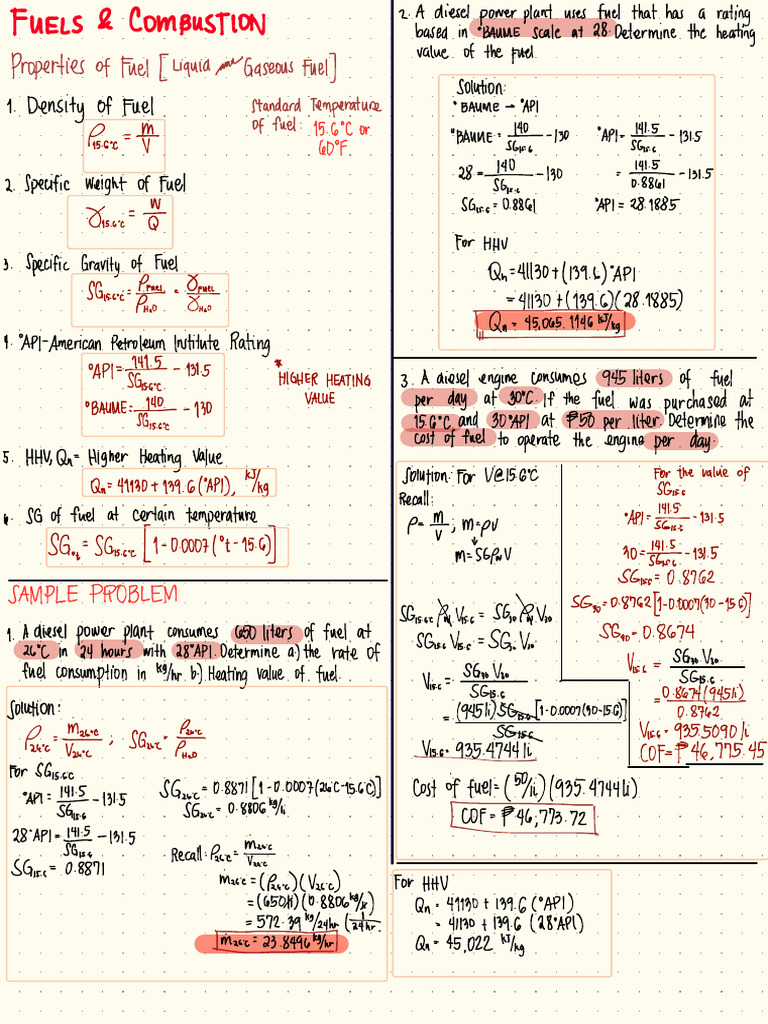 FUELS & COMBUSTION
Properties of Fuel [Liquid and Gaseous Fuel]
1. Density of Fuel
ρ15.6°C = m/V
Standard Temperature
of fuel: 15.6°C or
60°F.
2. Specific Weight of Fuel
γ15.6°C = W/Q
3. Specific Gravity of Fuel
SG15.6°C = ρFUEL/ρH2O = γFUEL/γH2O
4. °API-American Petroleum Institute Rating
°API = 141.5/SG15.6°C - 131.5
°BAUME = 140/SG15.6°C - 130
* HIGHER HEATING
VALUE
5. HHV, Qh = Higher Heating Value
Qh = 41130 + 139.6 (°API), kJ/kg
6. SG of fuel at certain temperature
SG°t = SG15.6°C [1-0.0007(°t-15.6)]
SAMPLE PROBLEM
1. A diesel power plant consumes 650 liters of fuel at
26°C in 24 hours with 28°API. Determine a.) the rate of
fuel consumption in kg/hr b.) Heating value of fuel.
Solution:
ρ26°C = m26°C/V26°C ; SG26°C = ρ26°C/ρH2O
For SG15.6C
°API = 141.5/SG15.6 - 131.5
28°API = 141.5/SG15.6 - 131.5
SG15.6 = 0.8871
SG26°C = 0.8871 [1-0.0007(26°C-15.6°C)]
SG26°C = 0.8806 kg/li
Recall: ρ26°C = m26°C/V26°C
m26°C = (ρ26°C)(V26°C)
= (650li)(0.8806 kg/li)
= 572.39 kg/24hr (1/24hr)
m26°C = 23.8496 kg/hr
2. A diesel power plant uses fuel that has a rating
based in °BAUME scale at 28. Determine the heating
value of the fuel.
Solution:
°BAUME → °API
°BAUME = 140/SG15.6 - 130
28 = 140/SG15.6 - 130
SG15.6 = 0.8861
°API = 141.5/SG15.6 - 131.5
= 141.5/0.8861 - 131.5
°API = 28.1885
For HHV
Qh = 41130 + (139.6) °API
= 41130 + (139.6)(28.1885)
Qh = 45,065.1146 kJ/kg
3. A diesel engine consumes 945 liters of fuel
per day at 30°C. If the fuel was purchased at
15.6°C and 30°API at ₱50 per liter. Determine the
cost of fuel to operate the engine per day.
Solution: For V@15.6°C
Recall:
ρ = m/V ; m = ρV
↓
m = SGρwV
SG15.6°C ρw V15.6 = SG30 ρw V30
SG15.6 V15.6 = SG30 V30
V15.6 = SG30 V30/SG15.6
= (945li) SG15.6 [1-0.0007(30-15.6)]/SG15.6
V15.6 = 935.4744 li
For the value of
SG15.6
°API = 141.5/SG15.6 - 131.5
30 = 141.5/SG15.6 - 131.5
SG15.6 = 0.8762
SG30 = 0.8762 [1-0.0007(30-15.6)]
SG30 = 0.8674
V15.6 = SG30 V30/SG15.6
= 0.8674(945li)/0.8762
V15.6 = 935.5090 li
COF = ₱46,775.45
Cost of fuel = (50/li)(935.4744li)
COF = ₱46,773.72
For HHV
Qh = 41130 + 139.6 (°API)
= 41130 + 139.6 (28°API)
Qh = 45,022 kJ/kg